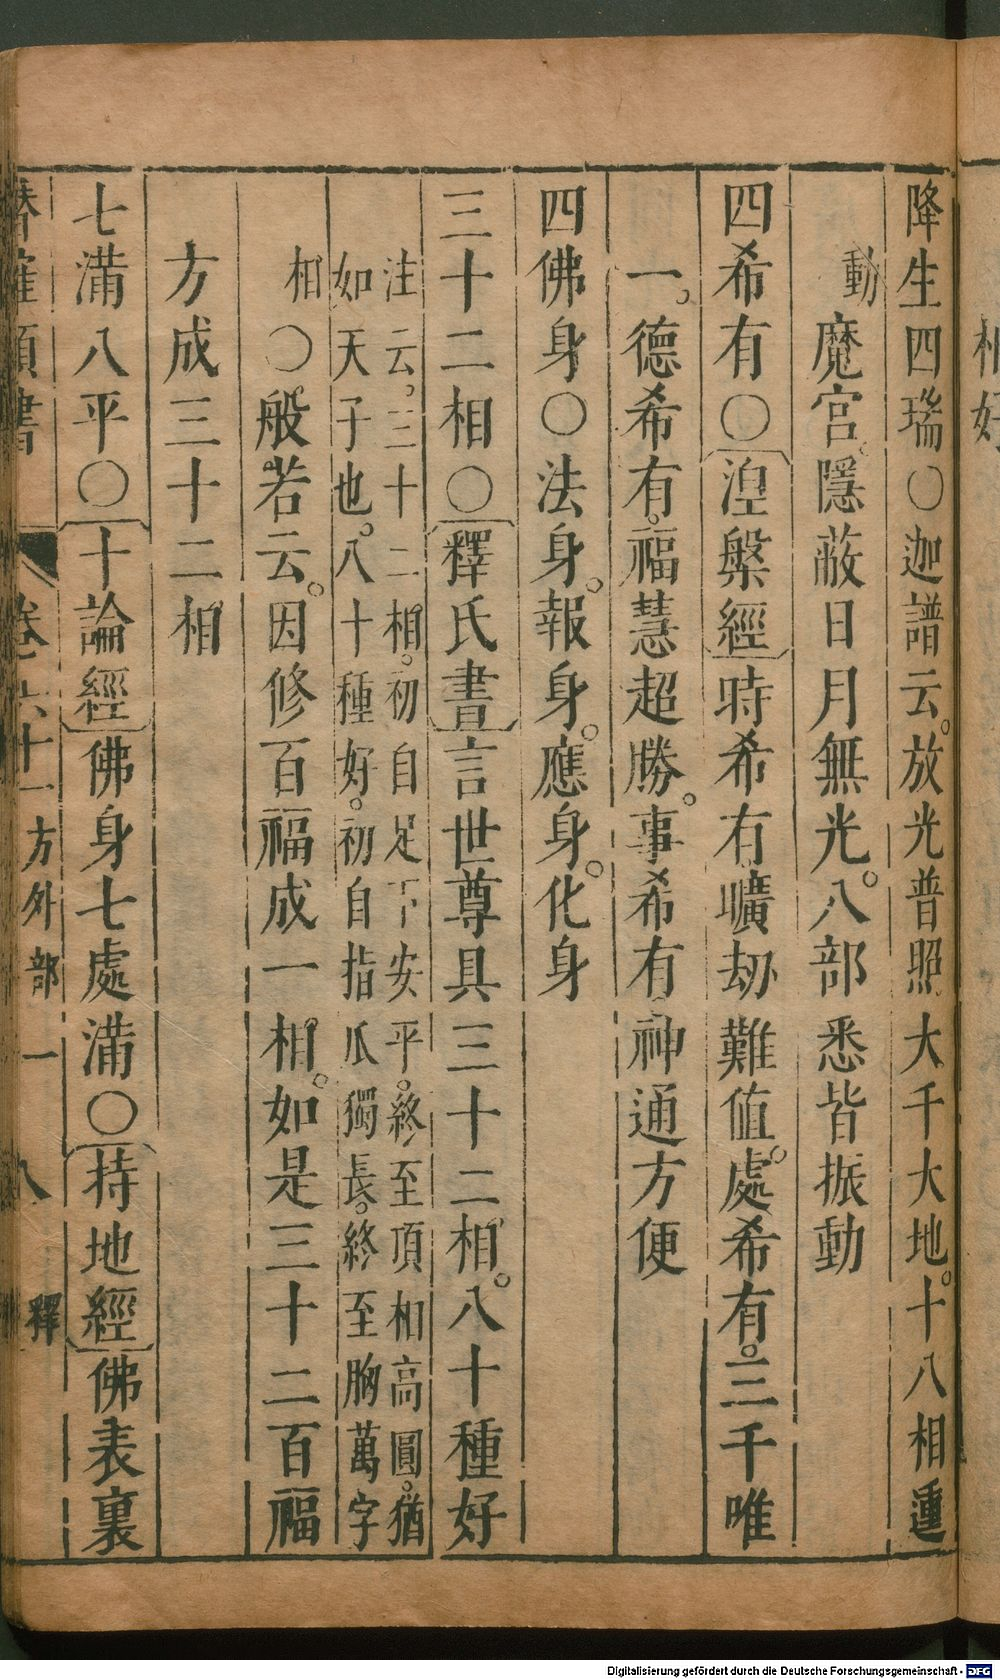 相好
降生四瑞○迦譜云放光普照大千大地十八相運
動魔宮隱蔽日月無光八部悉皆振動
四希有○湼槃經時希有曠劫難值處希有三千唯
一德希有福慧超勝事希有神通方便
四佛身○法身報身應身化身
三十二相○釋氏書言世尊具三十二相八十種好
注云三十二相初自足下安平終至頂相高圓猶
如天子也八十種好初自指爪獨長終至胸萬字
相○般若云因修百福成一相如是三十二百福
方成三十二相
七滿八平○十論經佛身七處滿○持地經佛表裏
卷六十一方外部一 八 釋
Digitalisierung gefördert durch die Deutsche Forschungsgemeinschaft - DFG